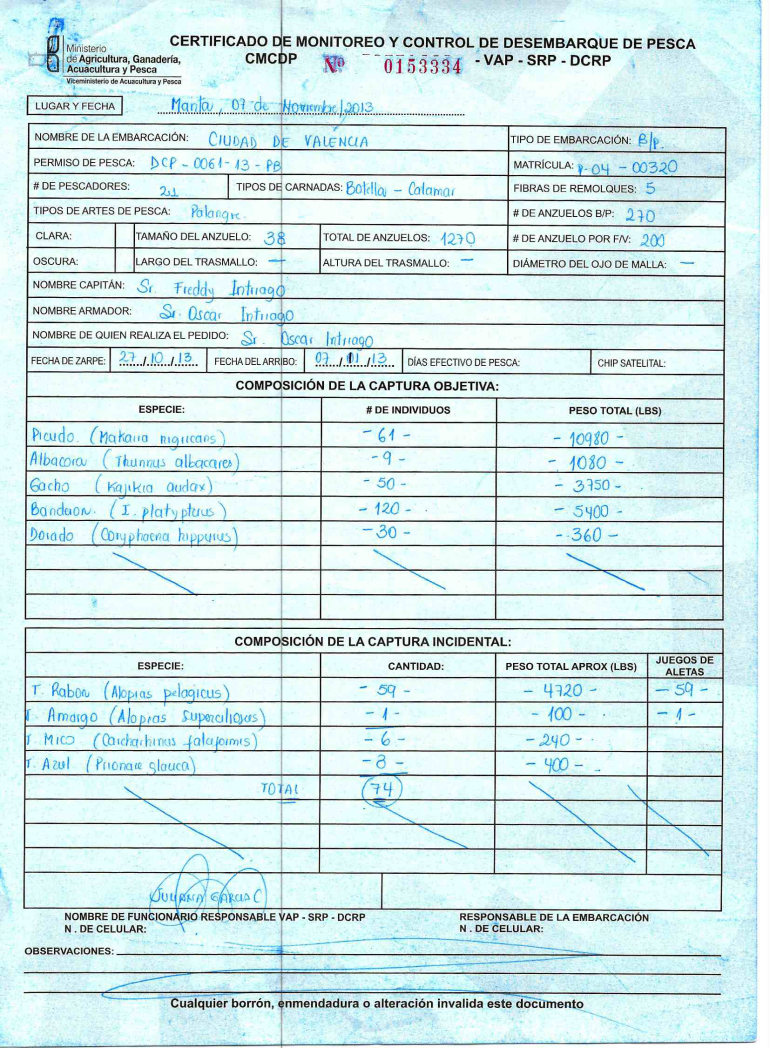 Ministerio
de Agricultura, Ganadería,
Acuacultura y Pesca
Viceministerio de Acuacultura y Pesca
CERTIFICADO DE MONITOREO Y CONTROL DE DESEMBARQUE DE PESCA
CMCDP Nº 0153334 - VAP - SRP - DCRP
LUGAR Y FECHA Manta, 07 de Noviembre/2013
NOMBRE DE LA EMBARCACIÓN: CIUDAD DE VALENCIA TIPO DE EMBARCACIÓN: B/P.
PERMISO DE PESCA: DCP - 0061 - 13 - PB MATRÍCULA: P-04 - 00320
# DE PESCADORES: 21 TIPOS DE CARNADAS: Botella - Calamar FIBRAS DE REMOLQUES: 5
TIPOS DE ARTES DE PESCA: Palangre. # DE ANZUELOS B/P: 270
CLARA: TAMAÑO DEL ANZUELO: 38 TOTAL DE ANZUELOS: 1270 # DE ANZUELO POR F/V: 200
OSCURA: LARGO DEL TRASMALLO: — ALTURA DEL TRASMALLO: — DIÁMETRO DEL OJO DE MALLA: —
NOMBRE CAPITÁN: Sr. Freddy Intriago
NOMBRE ARMADOR: Sr. Oscar Intriago
NOMBRE DE QUIEN REALIZA EL PEDIDO: Sr. Oscar Intriago
FECHA DE ZARPE: 27/10/13 FECHA DEL ARRIBO: 07/11/13 DÍAS EFECTIVO DE PESCA: CHIP SATELITAL:
COMPOSICIÓN DE LA CAPTURA OBJETIVA:
ESPECIE: # DE INDIVIDUOS PESO TOTAL (LBS)
Picudo. (Makaira nigricans) - 61 - - 10980 -
Albacora (Thunnus albacares) - 9 - - 1080 -
Gacho (Kajikia audax) - 50 - - 3750 -
Banderon. (I. platypterus) - 120 - - 5400 -
Dorado (Coryphaena hippurus) - 30 - - 360 -
COMPOSICIÓN DE LA CAPTURA INCIDENTAL:
ESPECIE: CANTIDAD: PESO TOTAL APROX (LBS) JUEGOS DE ALETAS
T. Rabon (Alopias pelagicus) - 59 - - 4720 - - 59 -
T. Amargo (Alopias superciliosus) - 1 - - 100 - - 1 -
T. Mico (Carcharhinus falaformis) - 6 - - 240 -
T. Azul (Prionace glauca) - 8 - - 400 -
TOTAL 74
JULIANA GARCIA C
NOMBRE DE FUNCIONARIO RESPONSABLE VAP - SRP - DCRP RESPONSABLE DE LA EMBARCACIÓN
N . DE CELULAR: N . DE CELULAR:
OBSERVACIONES:
Cualquier borrón, enmendadura o alteración invalida este documento